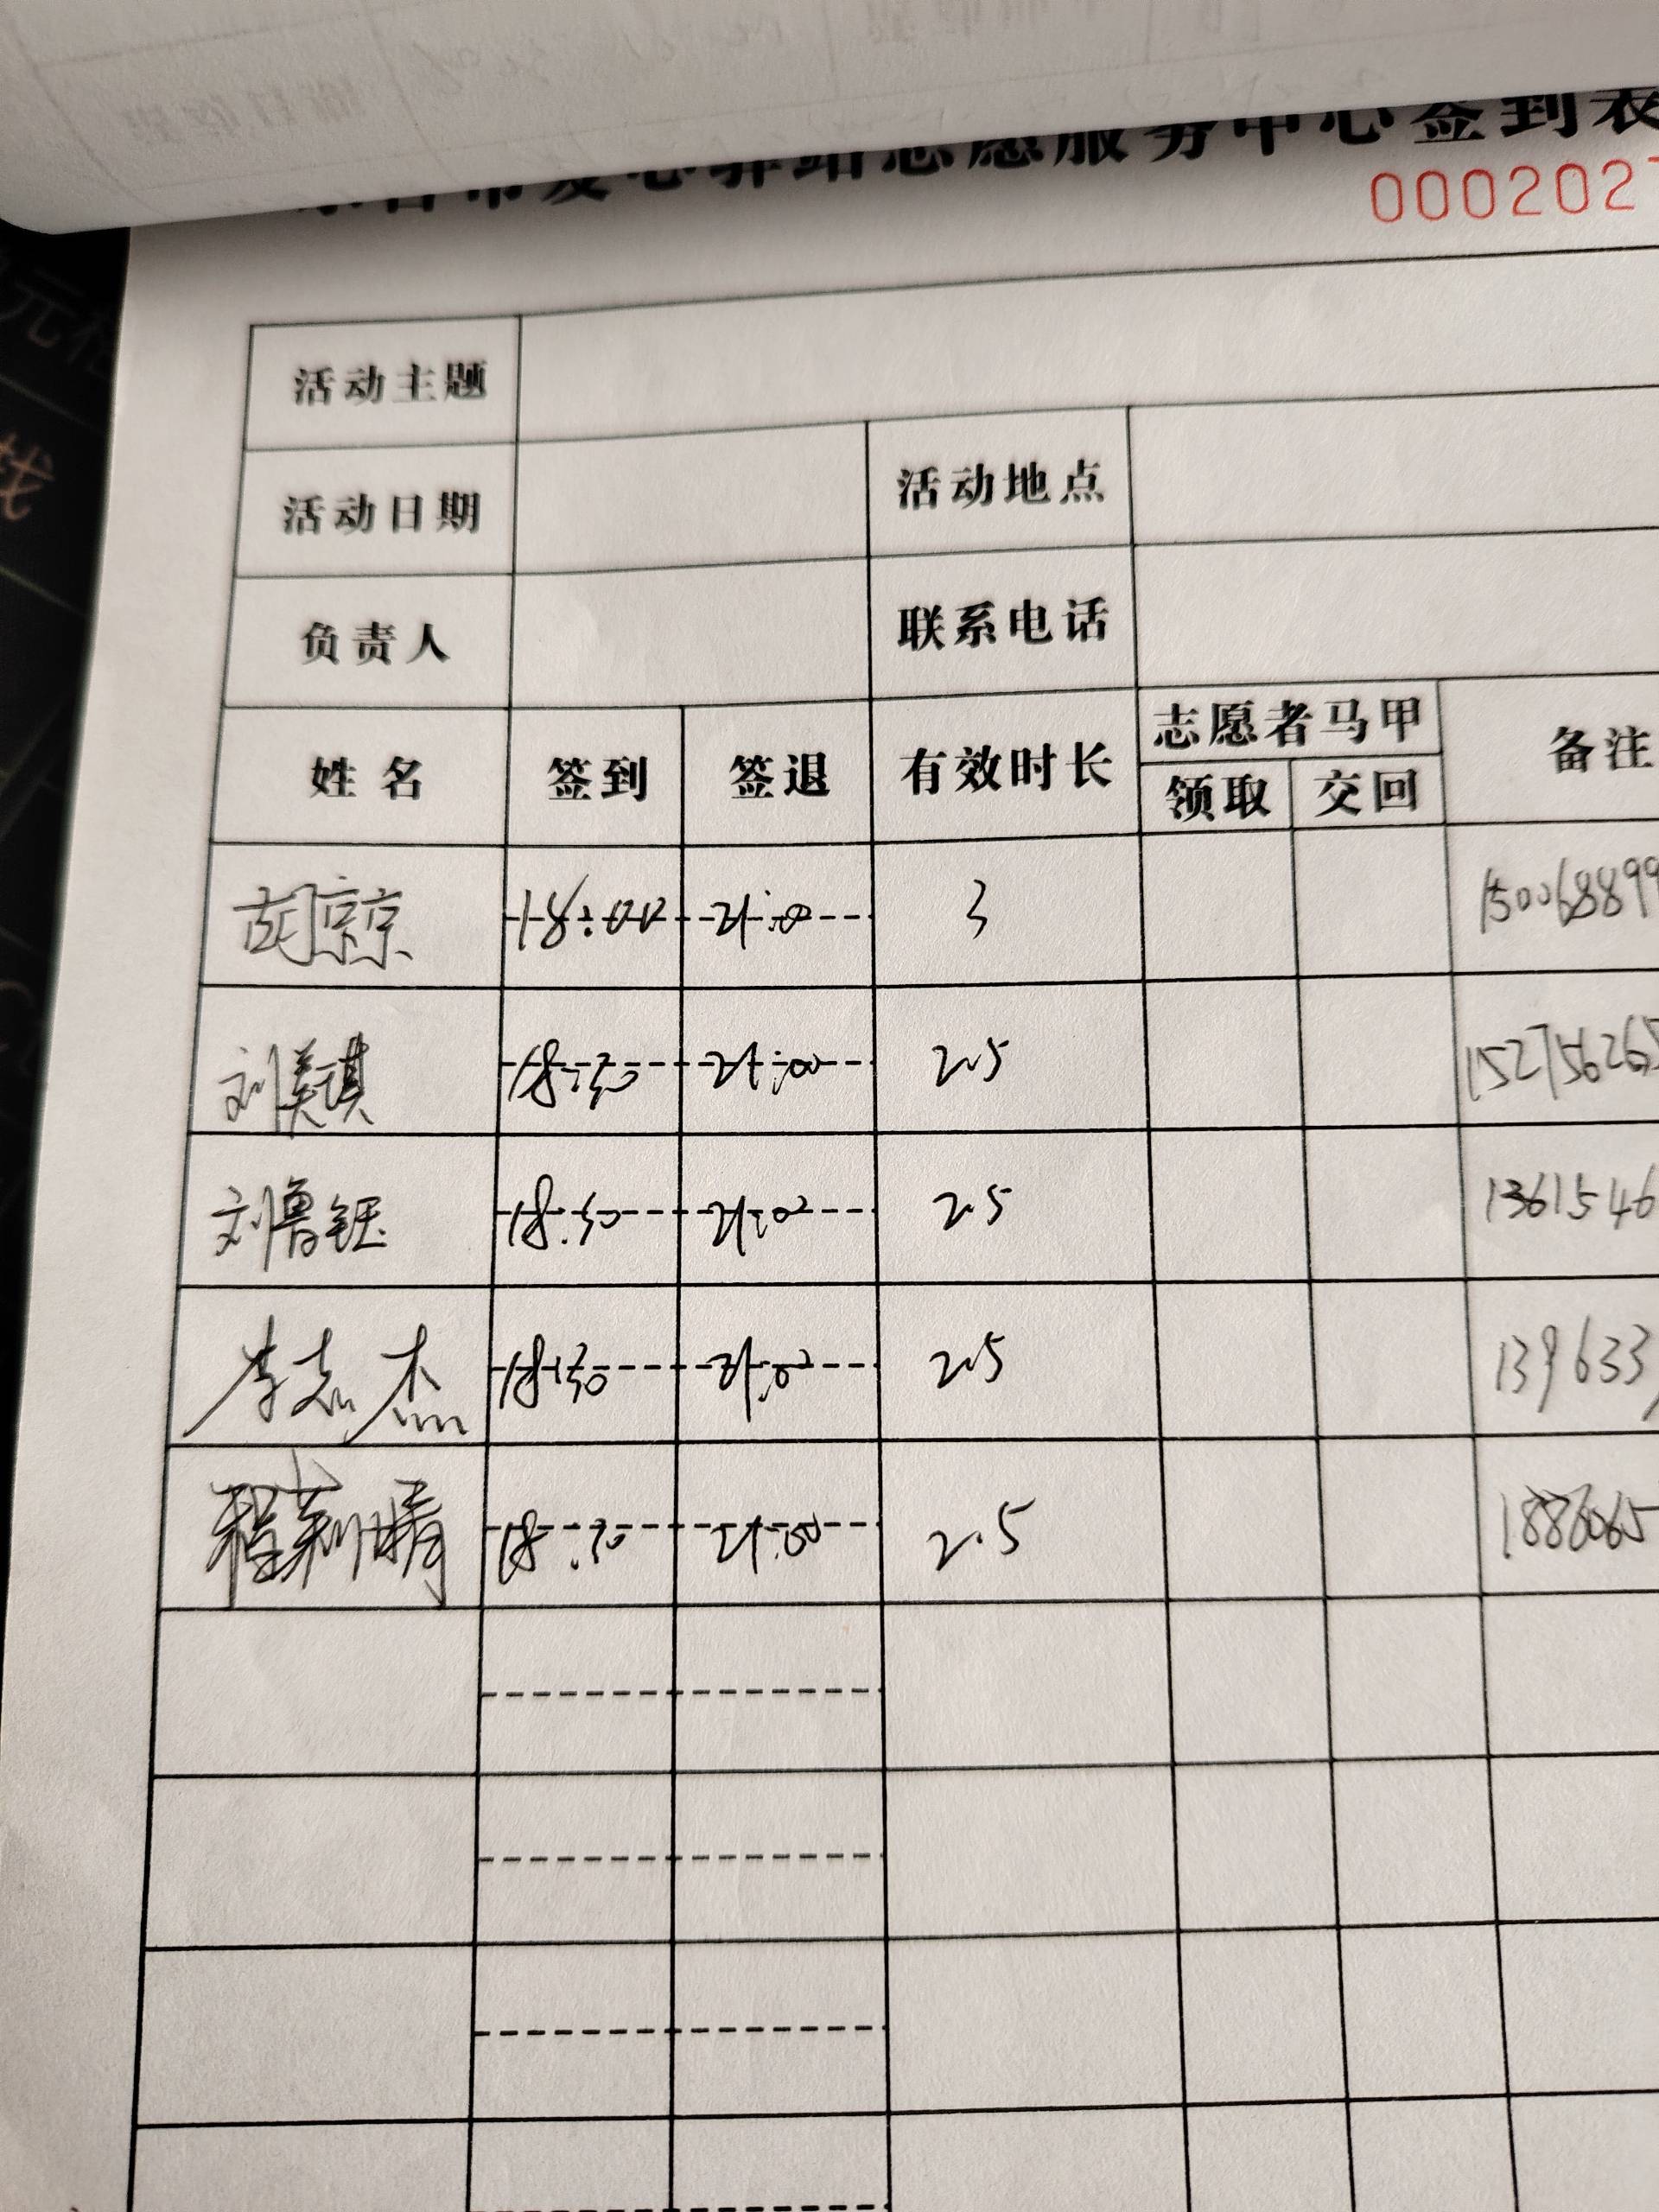 爱心驿站志愿服务中心签到表
000202
活动主题
活动日期 活动地点
负责人 联系电话
姓名 签到 签退 有效时长 志愿者马甲 备注
领取 交回
胡京京 18:00 21:00 3 150068899
刘美琪 18:30 21:00 2.5 152756265
刘鲁钰 18:30 21:00 2.5 1361546
李志杰 18:30 21:00 2.5 139633
程莉婧 18:30 21:00 2.5 1886065